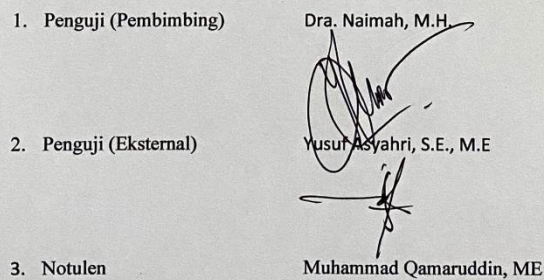 1. Penguji (Pembimbing) Dra. Naimah, M.H.
2. Penguji (Eksternal) Yusuf Asyahri, S.E., M.E
3. Notulen Muhammad Qamaruddin, ME